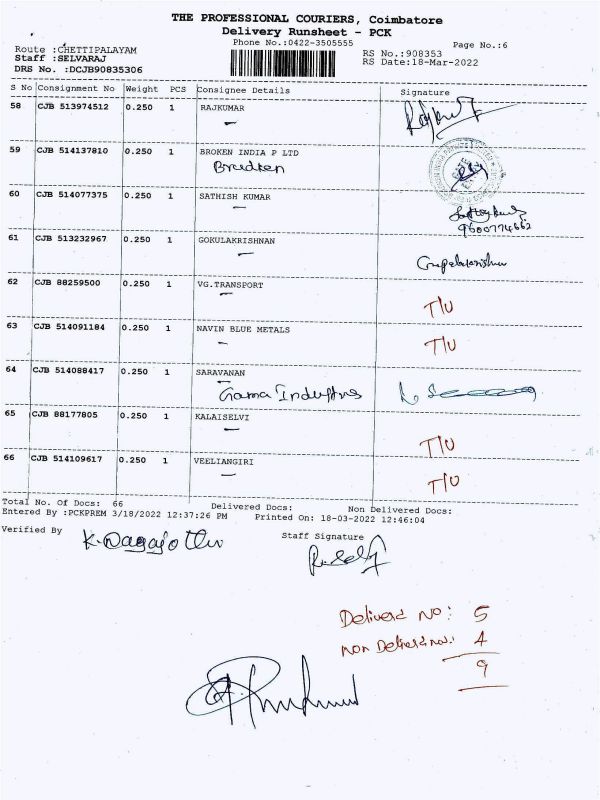 THE PROFESSIONAL COURIERS, Coimbatore
Delivery Runsheet - PCK
Phone No.:0422-3505555
Page No.:6
Route :CHETTIPALAYAM
Staff :SELVARAJ
DRS No. :DCJB90835306
RS No.:908353
RS Date:18-Mar-2022
S No Consignment No Weight PCS Consignee Details Signature
58 CJB 513974512 0.250 1 RAJKUMAR
59 CJB 514137810 0.250 1 BROKEN INDIA P LTD
60 CJB 514077375 0.250 1 SATHISH KUMAR
9600774662
61 CJB 513232967 0.250 1 GOKULAKRISHNAN
62 CJB 88259500 0.250 1 VG.TRANSPORT
T/U
63 CJB 514091184 0.250 1 NAVIN BLUE METALS
T/U
64 CJB 514088417 0.250 1 SARAVANAN
Gama Industries
65 CJB 88177805 0.250 1 KALAISELVI
T/U
66 CJB 514109617 0.250 1 VEELIANGIRI
T/U
Total No. Of Docs: 66 Delivered Docs: Non Delivered Docs:
Entered By :PCKPREM 3/18/2022 12:37:26 PM Printed On: 18-03-2022 12:46:04
Verified By Staff Signature
No: 5
Non 4
9